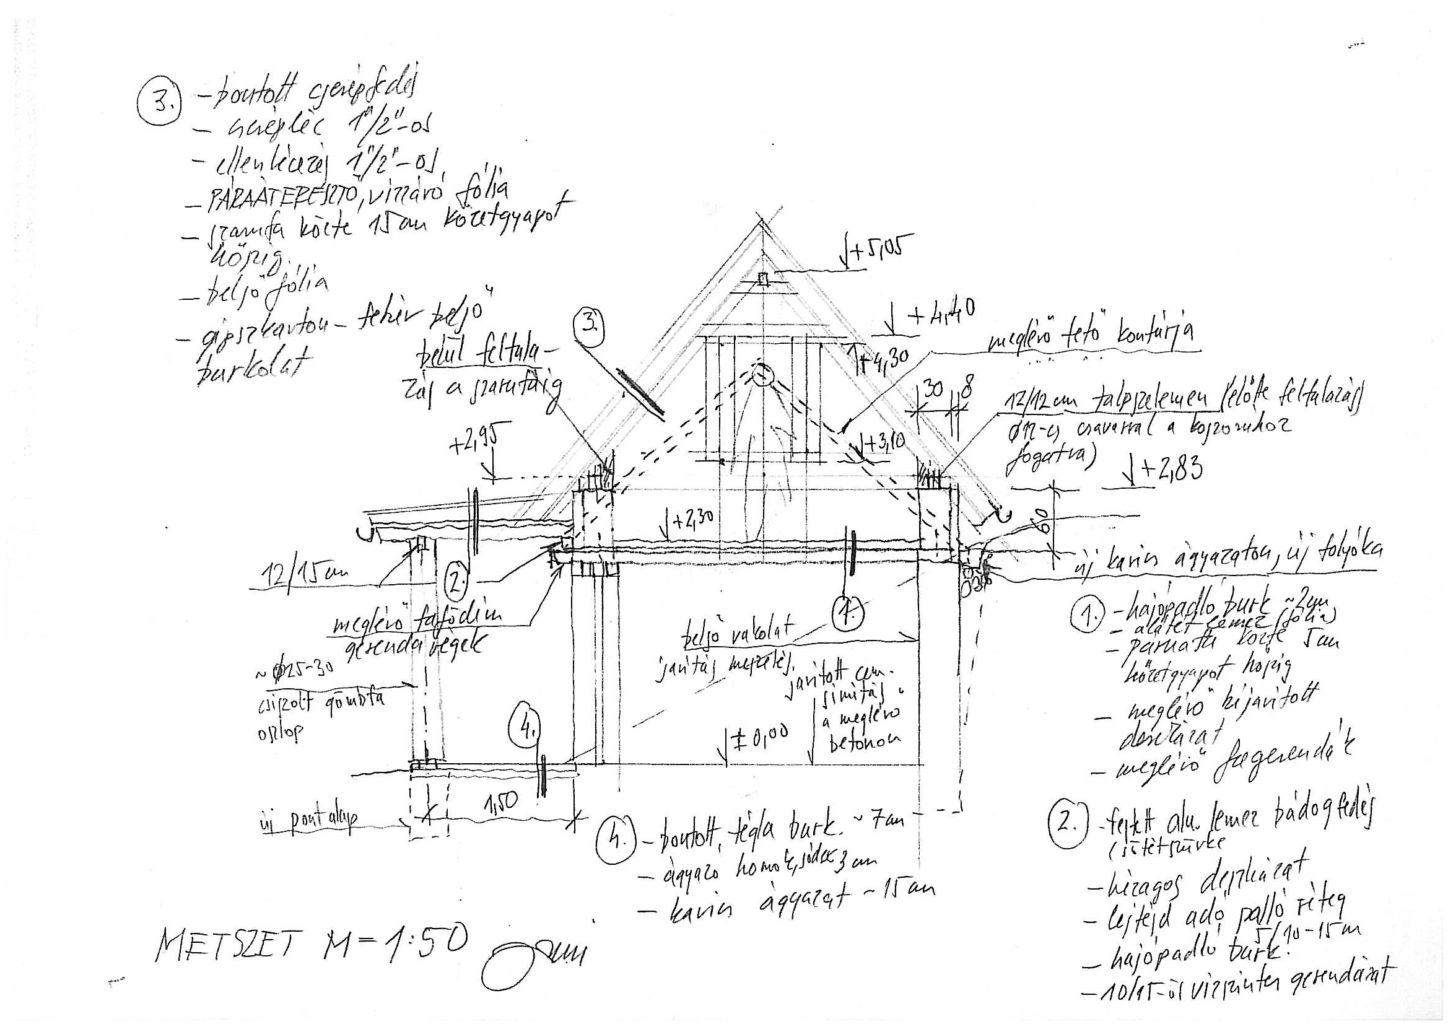 3.
- bontott cserépfedés
- cserépléc 1"/2"-os
- ellenlécezés 1"/2"-os
- PÁRAÁTERESZTŐ, vízzáró fólia
- szarufa közte 15 cm kőzetgyapot
hőszig.
- belső fólia
- gipszkarton - fehér belső
burkolat
belül feltala-
zás a szarufáig
3.
+5,05
+4,40
+4,30
meglévő tető kontúrja
30
8
12/12 cm talpszelemen (előtte feltalazás)
Ø12-es csavarral a koszorúhoz
fogatva)
+2,95
+3,10
+2,83
60
+2,30
12/15 cm
2.
új kavics ágyazaton, új folyóka
meglévő fafödém
gerenda végek
1.
belső vakolat
javítás meszelés.
javított cem.
simítás
a meglévő
betonon
~ Ø25-30
csiszolt gömbfa
oszlop
4.
± 0,00
1,50
új pont alap
1.
- hajópadló burk ~2cm
- alátét lemez (fólia)
- párnafa közte 5 cm
kőzetgyapot hőszig
- meglévő kijavított
deszkázat
- meglévő fagerendák
2.
- festett alu. lemez bádogfedés
(sötétszürke
- hézagos deszkázat
- lejtést adó palló réteg
5/10-15 cm
- hajópadló burk.
- 10/15-ös vízszintes gerendázat
4.
- bontott tégla burk. ~ 7 cm
- ágyazó homok, 3 cm
- kavics ágyazat ~ 15 cm
METSZET M = 1:50